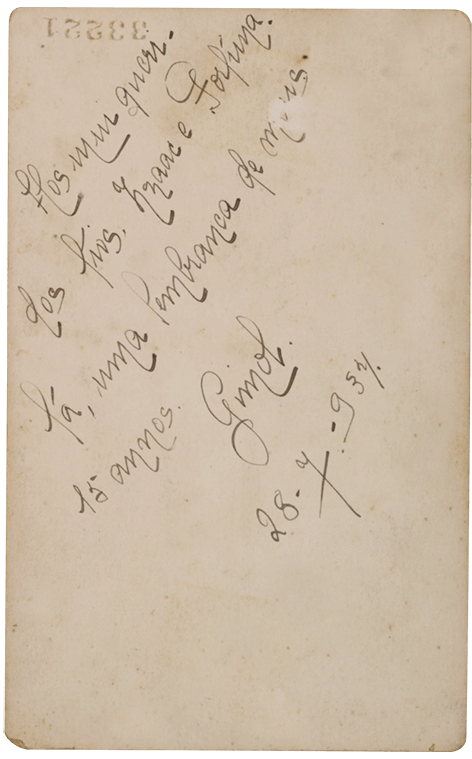 33221
Aos meus queri-
dos tios, Izaac e Fortuna-
ta, uma lembrança de meus
15 annos.
Gimol.
28-7-937.